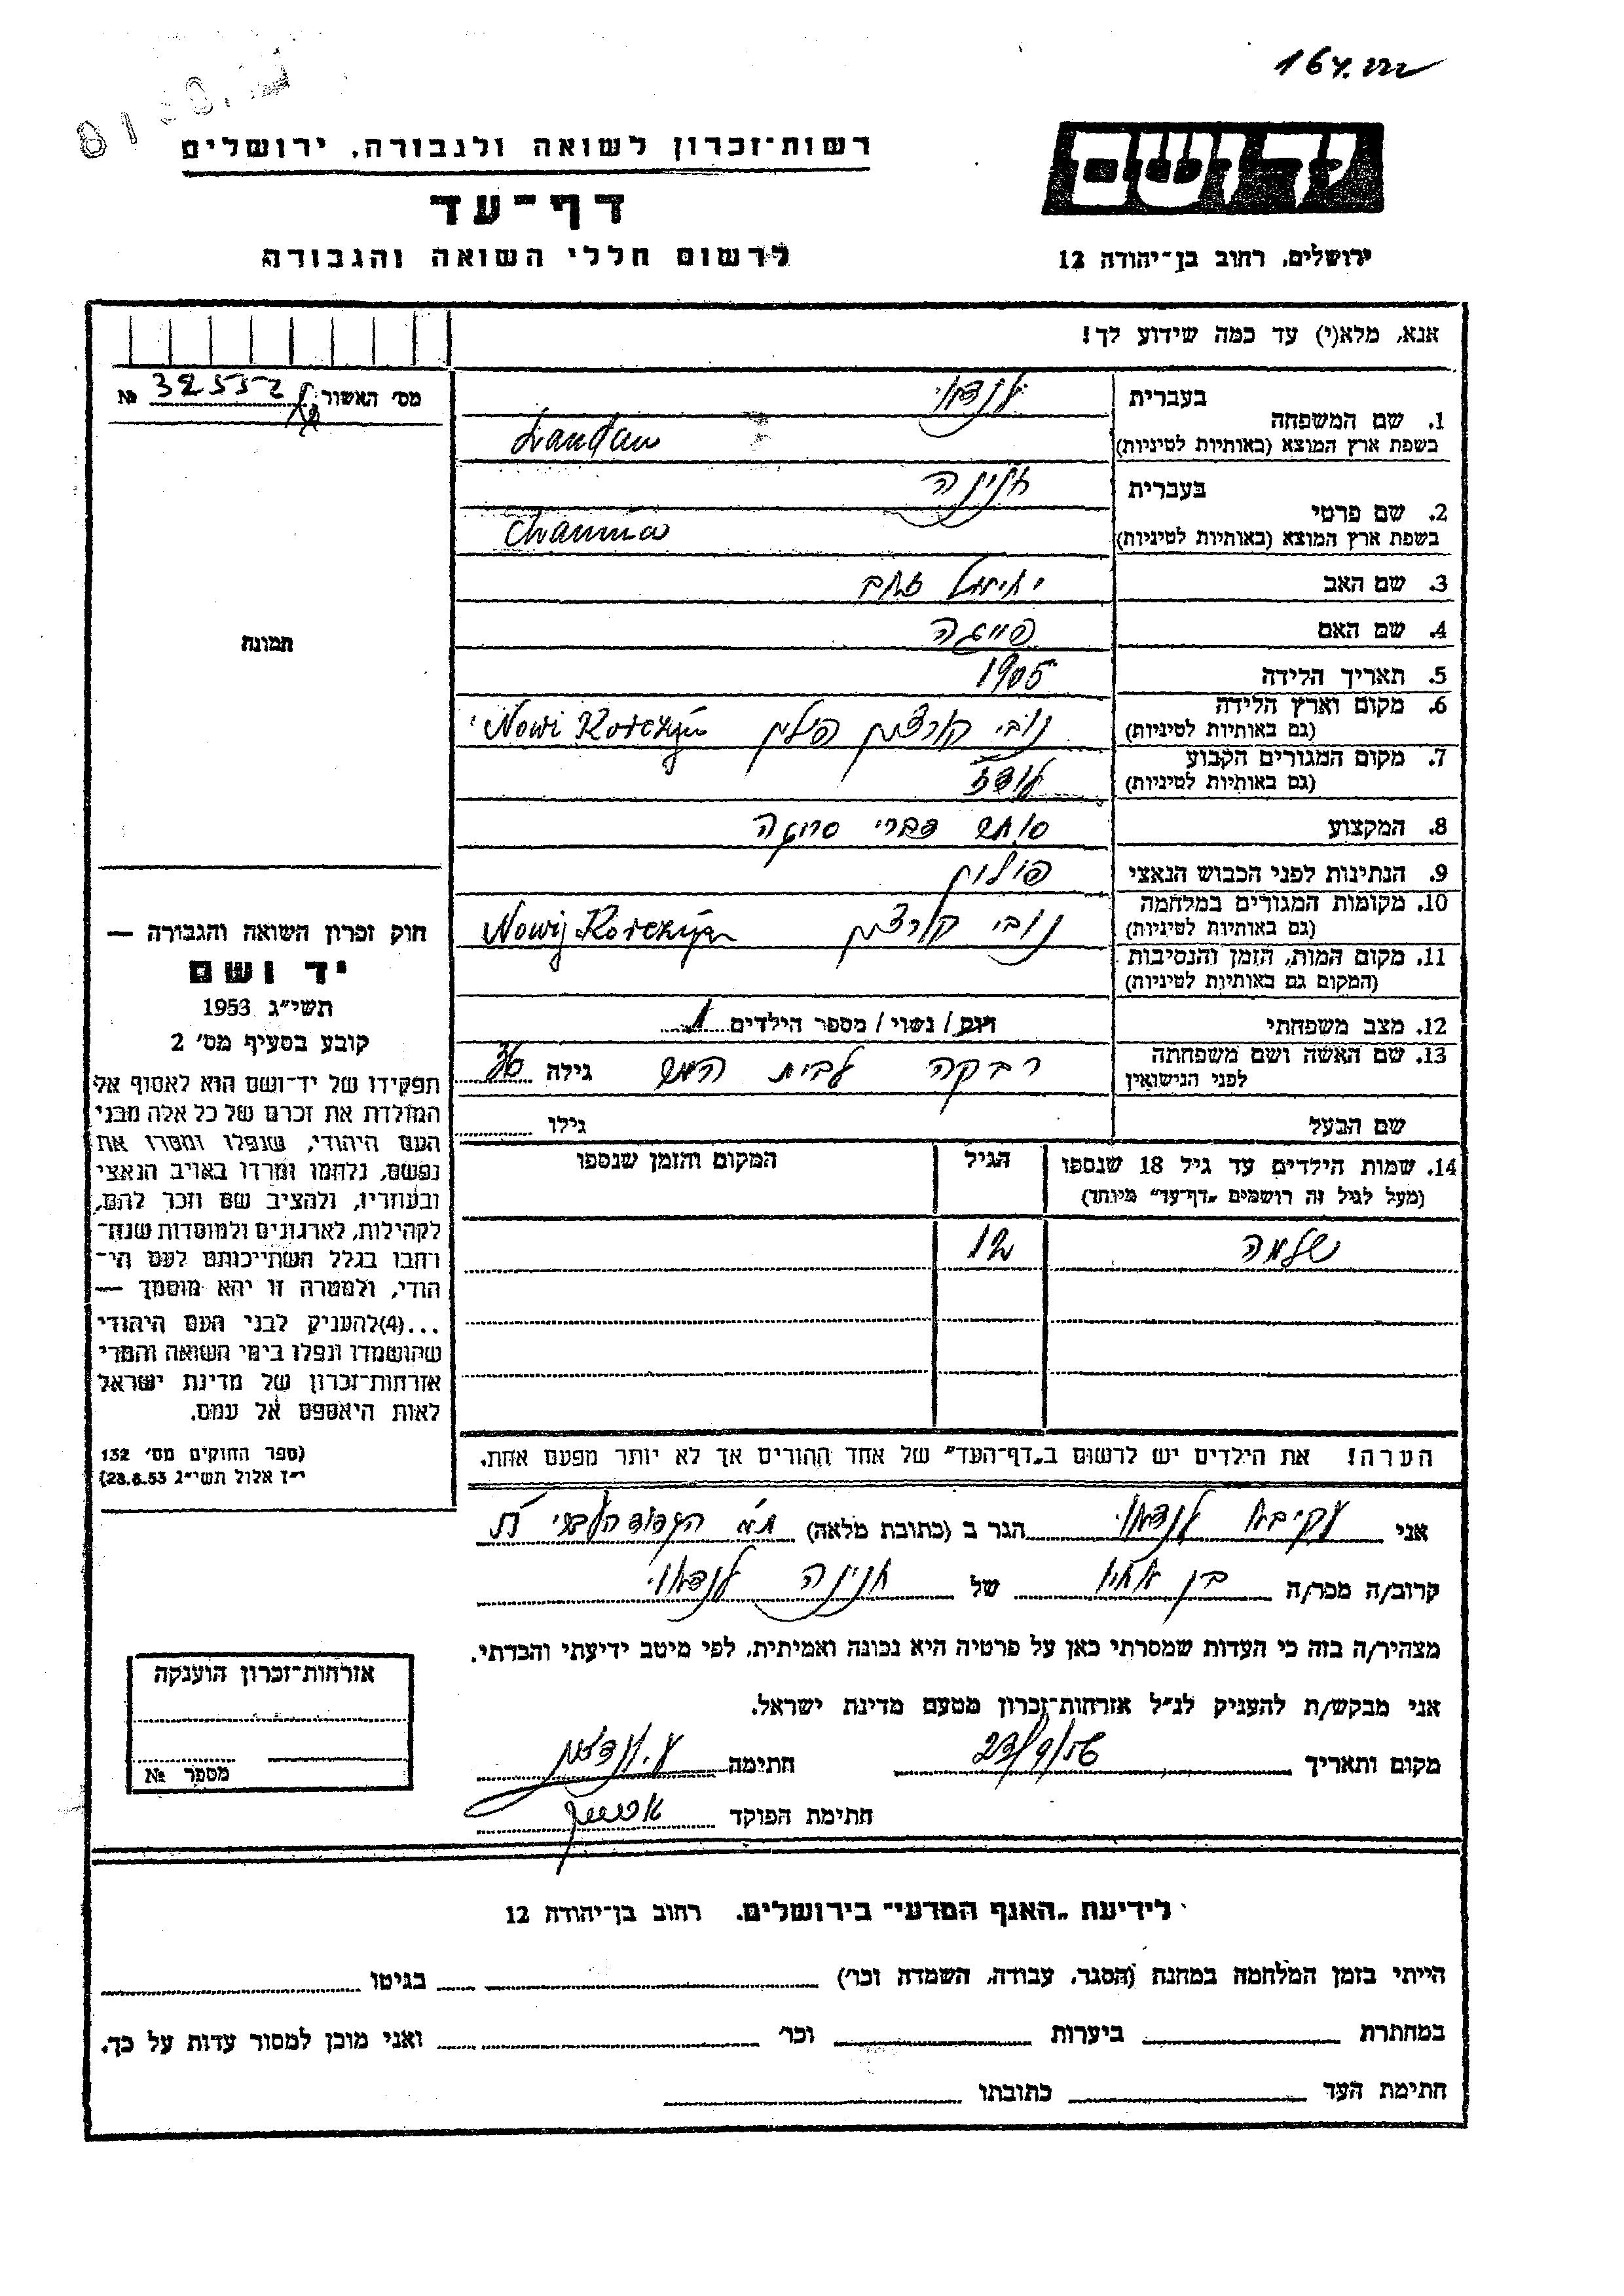 164.
יד ושם
רשות־זכרון לשואה ולגבורה, ירושלים
דף־עד
ירושלים, רחוב בן־יהודה 12
לרשום חללי השואה והגבורה
אנא, מלא(י) עד כמה שידוע לך!
מס׳ האשור № 32552
1. שם המשפחה
בעברית לנדאו
בשפת ארץ המוצא (באותיות לטיניות) Landau
2. שם פרטי
בעברית חנינה
בשפת ארץ המוצא (באותיות לטיניות) Chanina
3. שם האב יחיאל זאב
4. שם האם פייגה
5. תאריך הלידה 1905
6. מקום וארץ הלידה נובי קורצין פולין Nowi Korczyn
(גם באותיות לטיניות)
7. מקום המגורים הקבוע לודז
(גם באותיות לטיניות)
8. המקצוע סוחר דברי סריגה
9. הנתינות לפני הכבוש הנאצי פולין
10. מקומות המגורים במלחמה נובי קורצין Nowij Korczyn
(גם באותיות לטיניות)
11. מקום המות, הזמן והנסיבות
(המקום גם באותיות לטיניות)
12. מצב משפחתי רווק / נשוי / מספר הילדים 1
13. שם האשה ושם משפחתה רבקה לבית גילה 36
לפני הנישואין
שם הבעל גילו
14. שמות הילדים עד גיל 18 שנספו הגיל המקום והזמן שנספו
(מעל לגיל זה רושמים „דף־עד” מיוחד)
שלמה 12
הערה! את הילדים יש לרשום ב„דף־העד” של אחד ההורים אך לא יותר מפעם אחת.
תמונה
חוק זכרון השואה והגבורה —
יד ושם
תשי״ג 1953
קובע בסעיף מס׳ 2
תפקידו של יד־ושם הוא לאסוף אל
המולדת את זכרם של כל אלה מבני
העם היהודי, שנפלו ומסרו את
נפשם, נלחמו ומרדו באויב הנאצי
ובעוזריו, ולהציב שם וזכר להם,
לקהילות, לארגונים ולמוסדות שנח־
רחבו בגלל השתייכותם לעם הי־
הודי, ולמטרה זו יהא מוסמך —
...(4)להעניק לבני העם היהודי
שהושמדו ונפלו בימי השואה והמרי
אזרחות־זכרון של מדינת ישראל
לאות היאספם אל עמם.
(ספר החוקים מס׳ 132
י״ז אלול תשי״ג 28.8.53)
אני עקיבא לנדאו הגר ב (כתובת מלאה) ת״א
קרוב/ה מכר/ה בן אחיו של חנינה לנדאו
מצהיר/ה בזה כי העדות שמסרתי כאן על פרטיה היא נכונה ואמיתית, לפי מיטב ידיעתי והכרתי.
אני מבקש/ת להעניק לנ״ל אזרחות־זכרון מטעם מדינת ישראל.
מקום ותאריך 23/9/56 חתימה ע. לנדאו
חתימת הפוקד
אזרחות־זכרון הוענקה
מספר №
לידיעת „האגף המדעי” בירושלים, רחוב בן־יהודה 12
הייתי בזמן המלחמה במחנה (הסגר, עבודה, השמדה וכר׳) בגיטו
במחתרת ביערות וכר׳ ואני מוכן למסור עדות על כך.
חתימת העד כתובתו